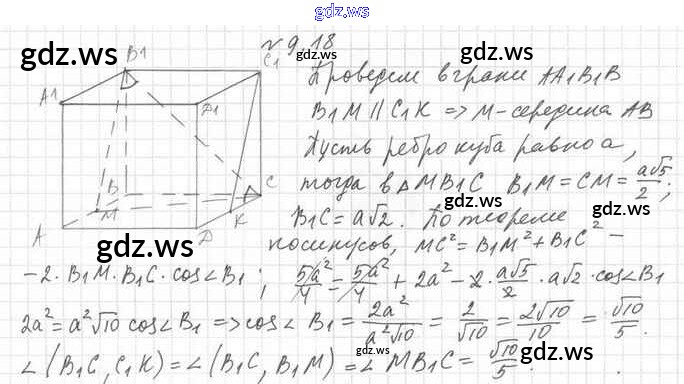 gdz.ws
№ 9.18
gdz.ws
gdz.ws
B1
C1
A1
D1
B
C
M
K
A
D
Проведем в грани AA1B1B
B1M || C1K => M - середина AB
Пусть ребро куба равно a,
тогда в △MB1C B1M = CM = a√5/2;
gdz.ws
B1C = a√2. По теореме
gdz.ws
косинусов, MC² = B1M² + B1C² -
- 2 · B1M · B1C · cos∠B1; 5a²/4 = 5a²/4 + 2a² - 2 · a√5/2 · a√2 · cos∠B1
2a² = a²√10 cos∠B1 => cos∠B1 = 2a²/a²√10 = 2/√10 = 2√10/10 = √10/5.
gdz.ws
gdz.ws
∠(B1C, C1K) = ∠(B1C, B1M) = ∠MB1C = √10/5.